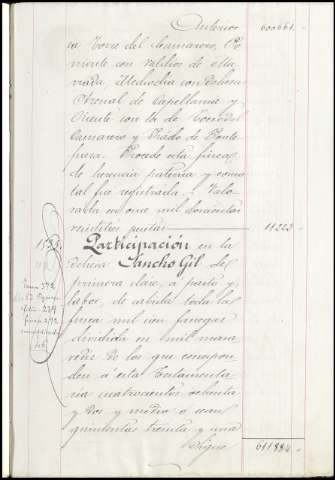 Anterior 600661.
ca Torre del Camarero, Po-
niente con valdios de esta
Mediodia con Dehesa
Arenal de Capellanía y
Oriente con la de Torre del
Camarero y Prado de Ponte-
Procede esta finca
de herencia paterna y como
tal fue registrada. Valo-
rada en once mil doscientas
veintitres pesetas 11223
Participación en la
Dehesa Sancho Gil del
primera clase, a pasto y
labor, de cabida toda la
finca mil cien fanegas
dividida en mil mara-
vedis de los que correspon-
den a esta Testamenta-
ria cuatrocientos ochenta
y dos y medio o sean
quinientas treinta y una
Sigue 611884.